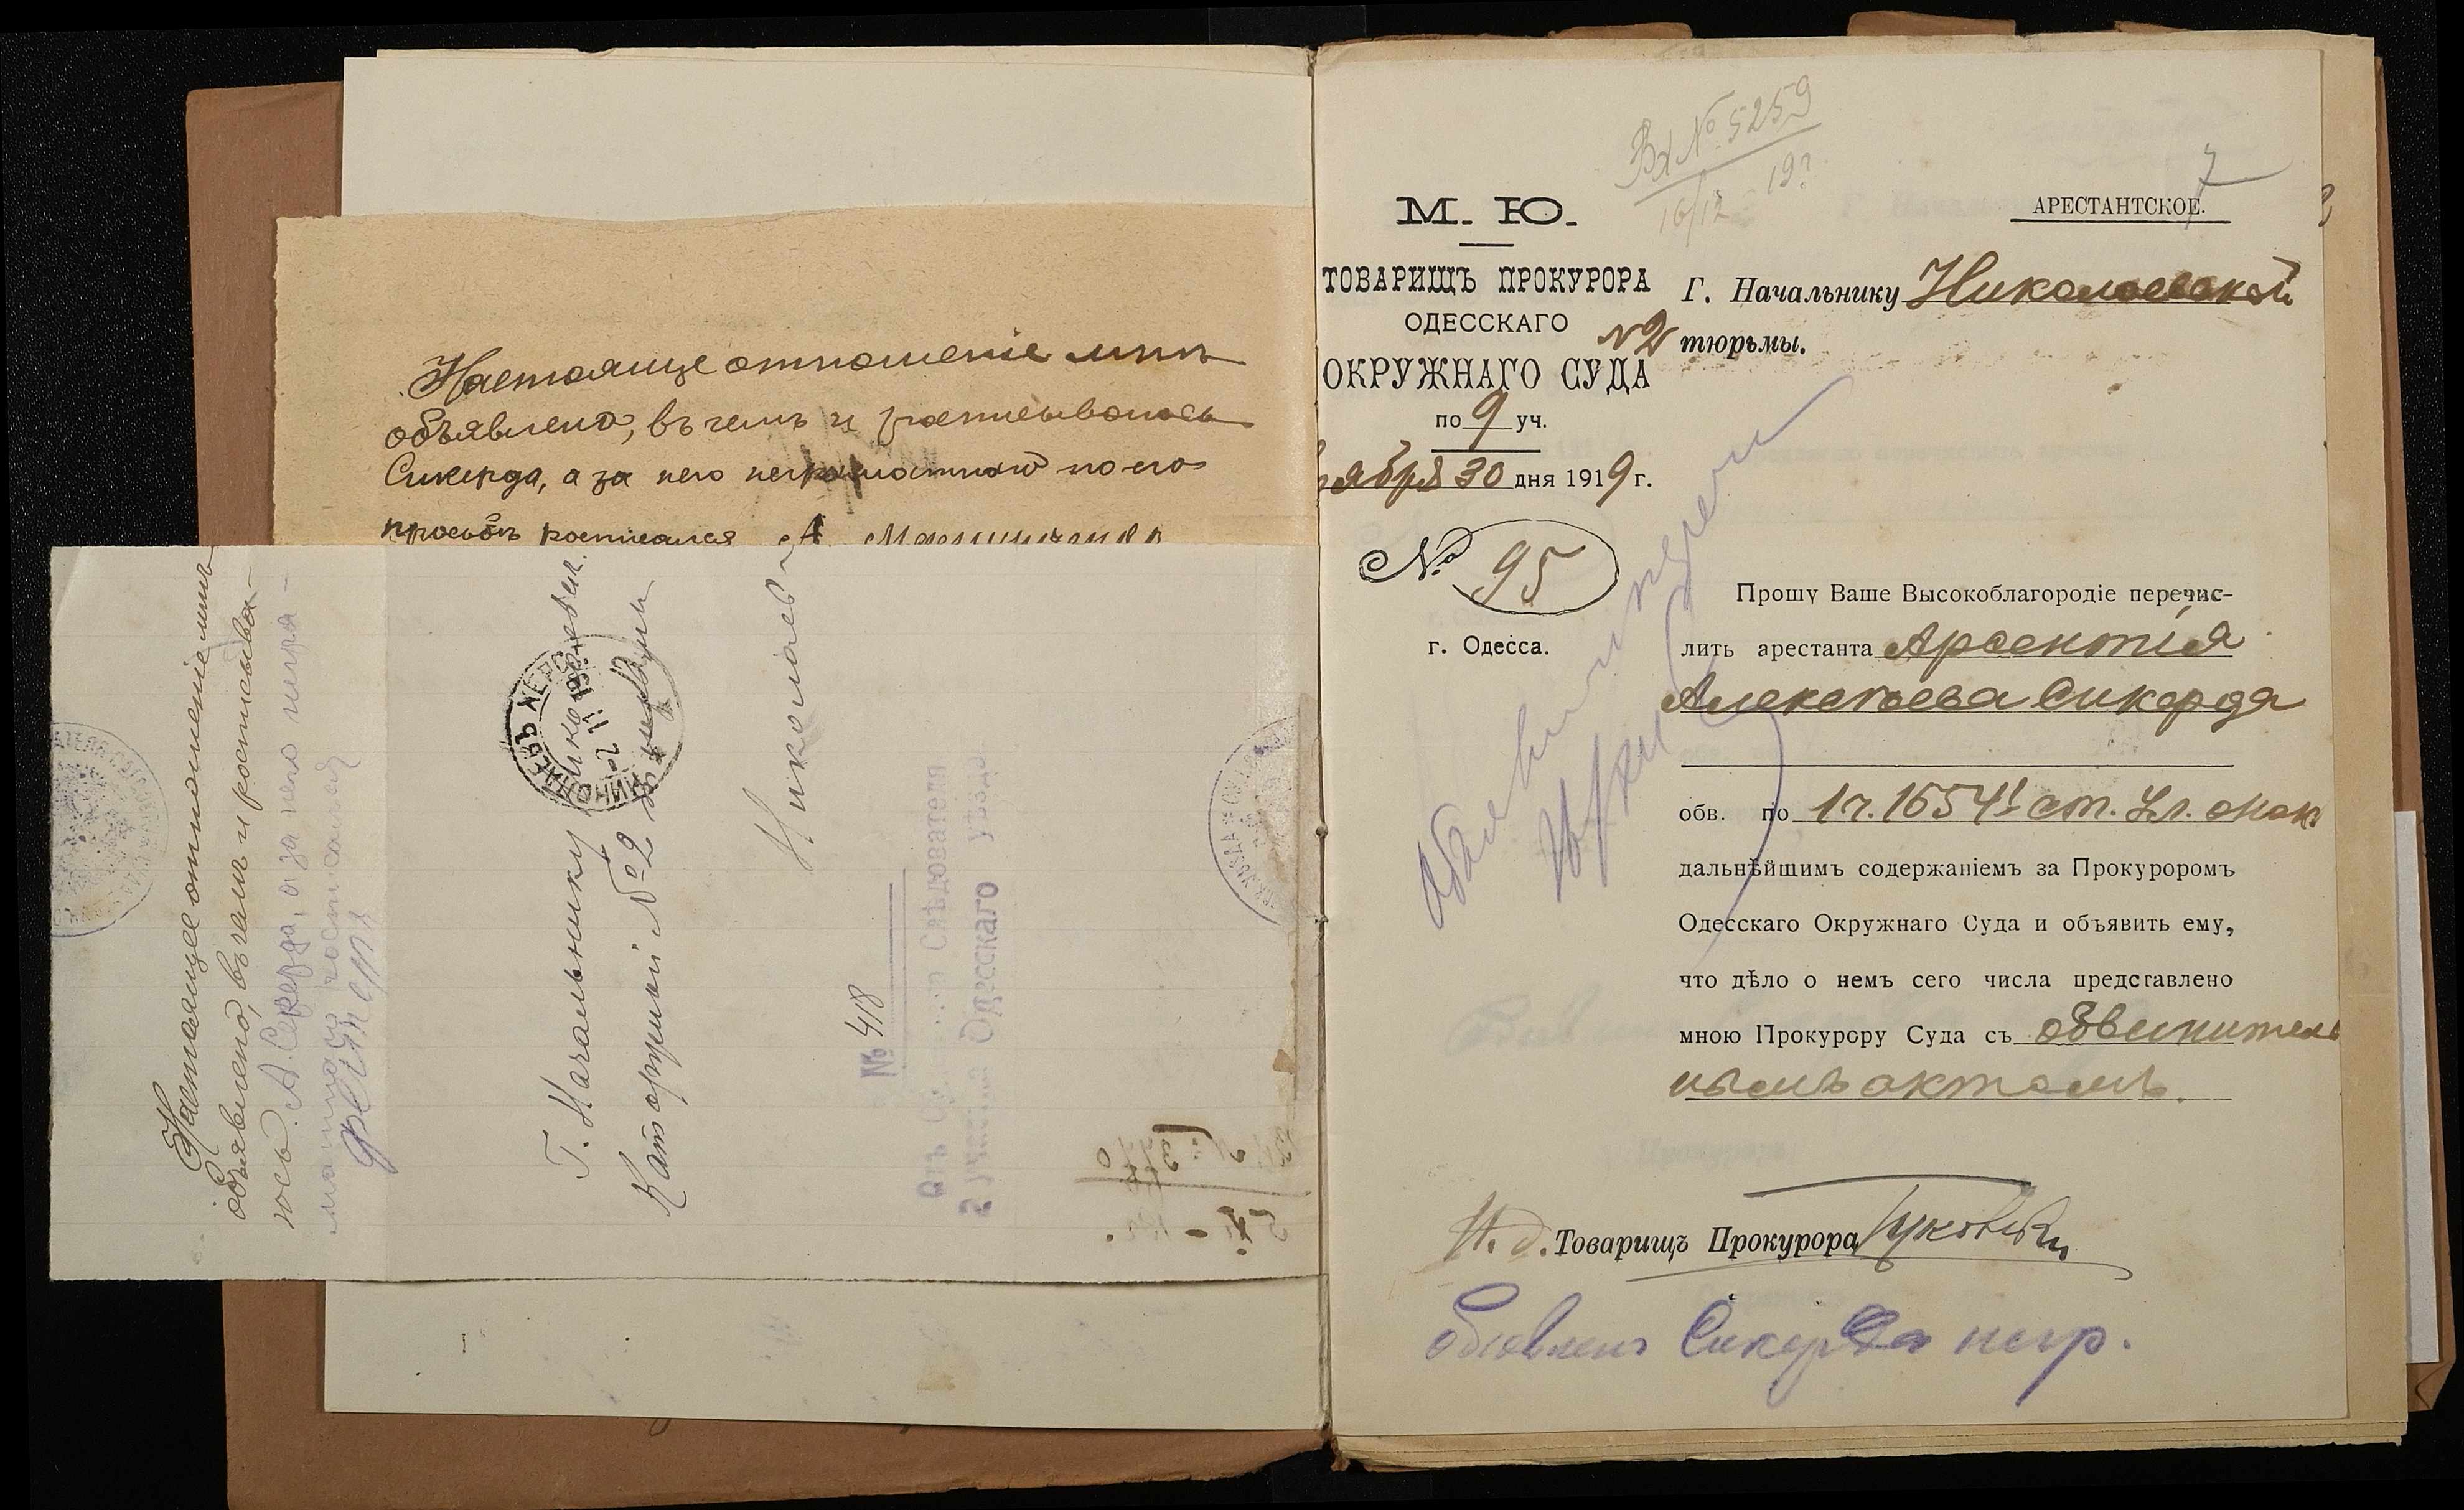 Настояще отношеніе мнѣ
объявлено, въ чемъ и росписываюсь
Сикерда, а за него неграмотного по его
просьбѣ росписался А.
Настоящее отношеніе мнѣ
объявлено, въ чемъ и росписыва-
юсь. А. Сикерда, а за него негра-
мотнаго росписался
Г. Начальнику Николаевск.
Каторжной № 2 тюрьмы
НИКОЛАЕВЪ ХЕРС.
Николаевъ
№ 418
Слѣдователя
Одесскаго уѣзда
Вх № 5259
16/12 19г
7
М. Ю.
ТОВАРИЩЪ ПРОКУРОРА
ОДЕССКАГО
ОКРУЖНАГО СУДА
по 9 уч.
ября 30 дня 1919 г.
№ 95
г. Одесса.
АРЕСТАНТСКОЕ.
Г. Начальнику Николаевской
№2 тюрьмы.
Прошу Ваше Высокоблагородіе перечис-
лить арестанта Арсентія
Алексѣева Сикерда
обв. по 1 ч. 1654¹ ст. Ул. о нак.
дальнѣйщимъ содержаніемъ за Прокуроромъ
Одесскаго Окружнаго Суда и объявить ему,
что дѣло о немъ сего числа представлено
мною Прокурору Суда съ обвинитель
нымъ актомъ.
И. д. Товарищъ Прокурора
Обявлен Сикерда негр.